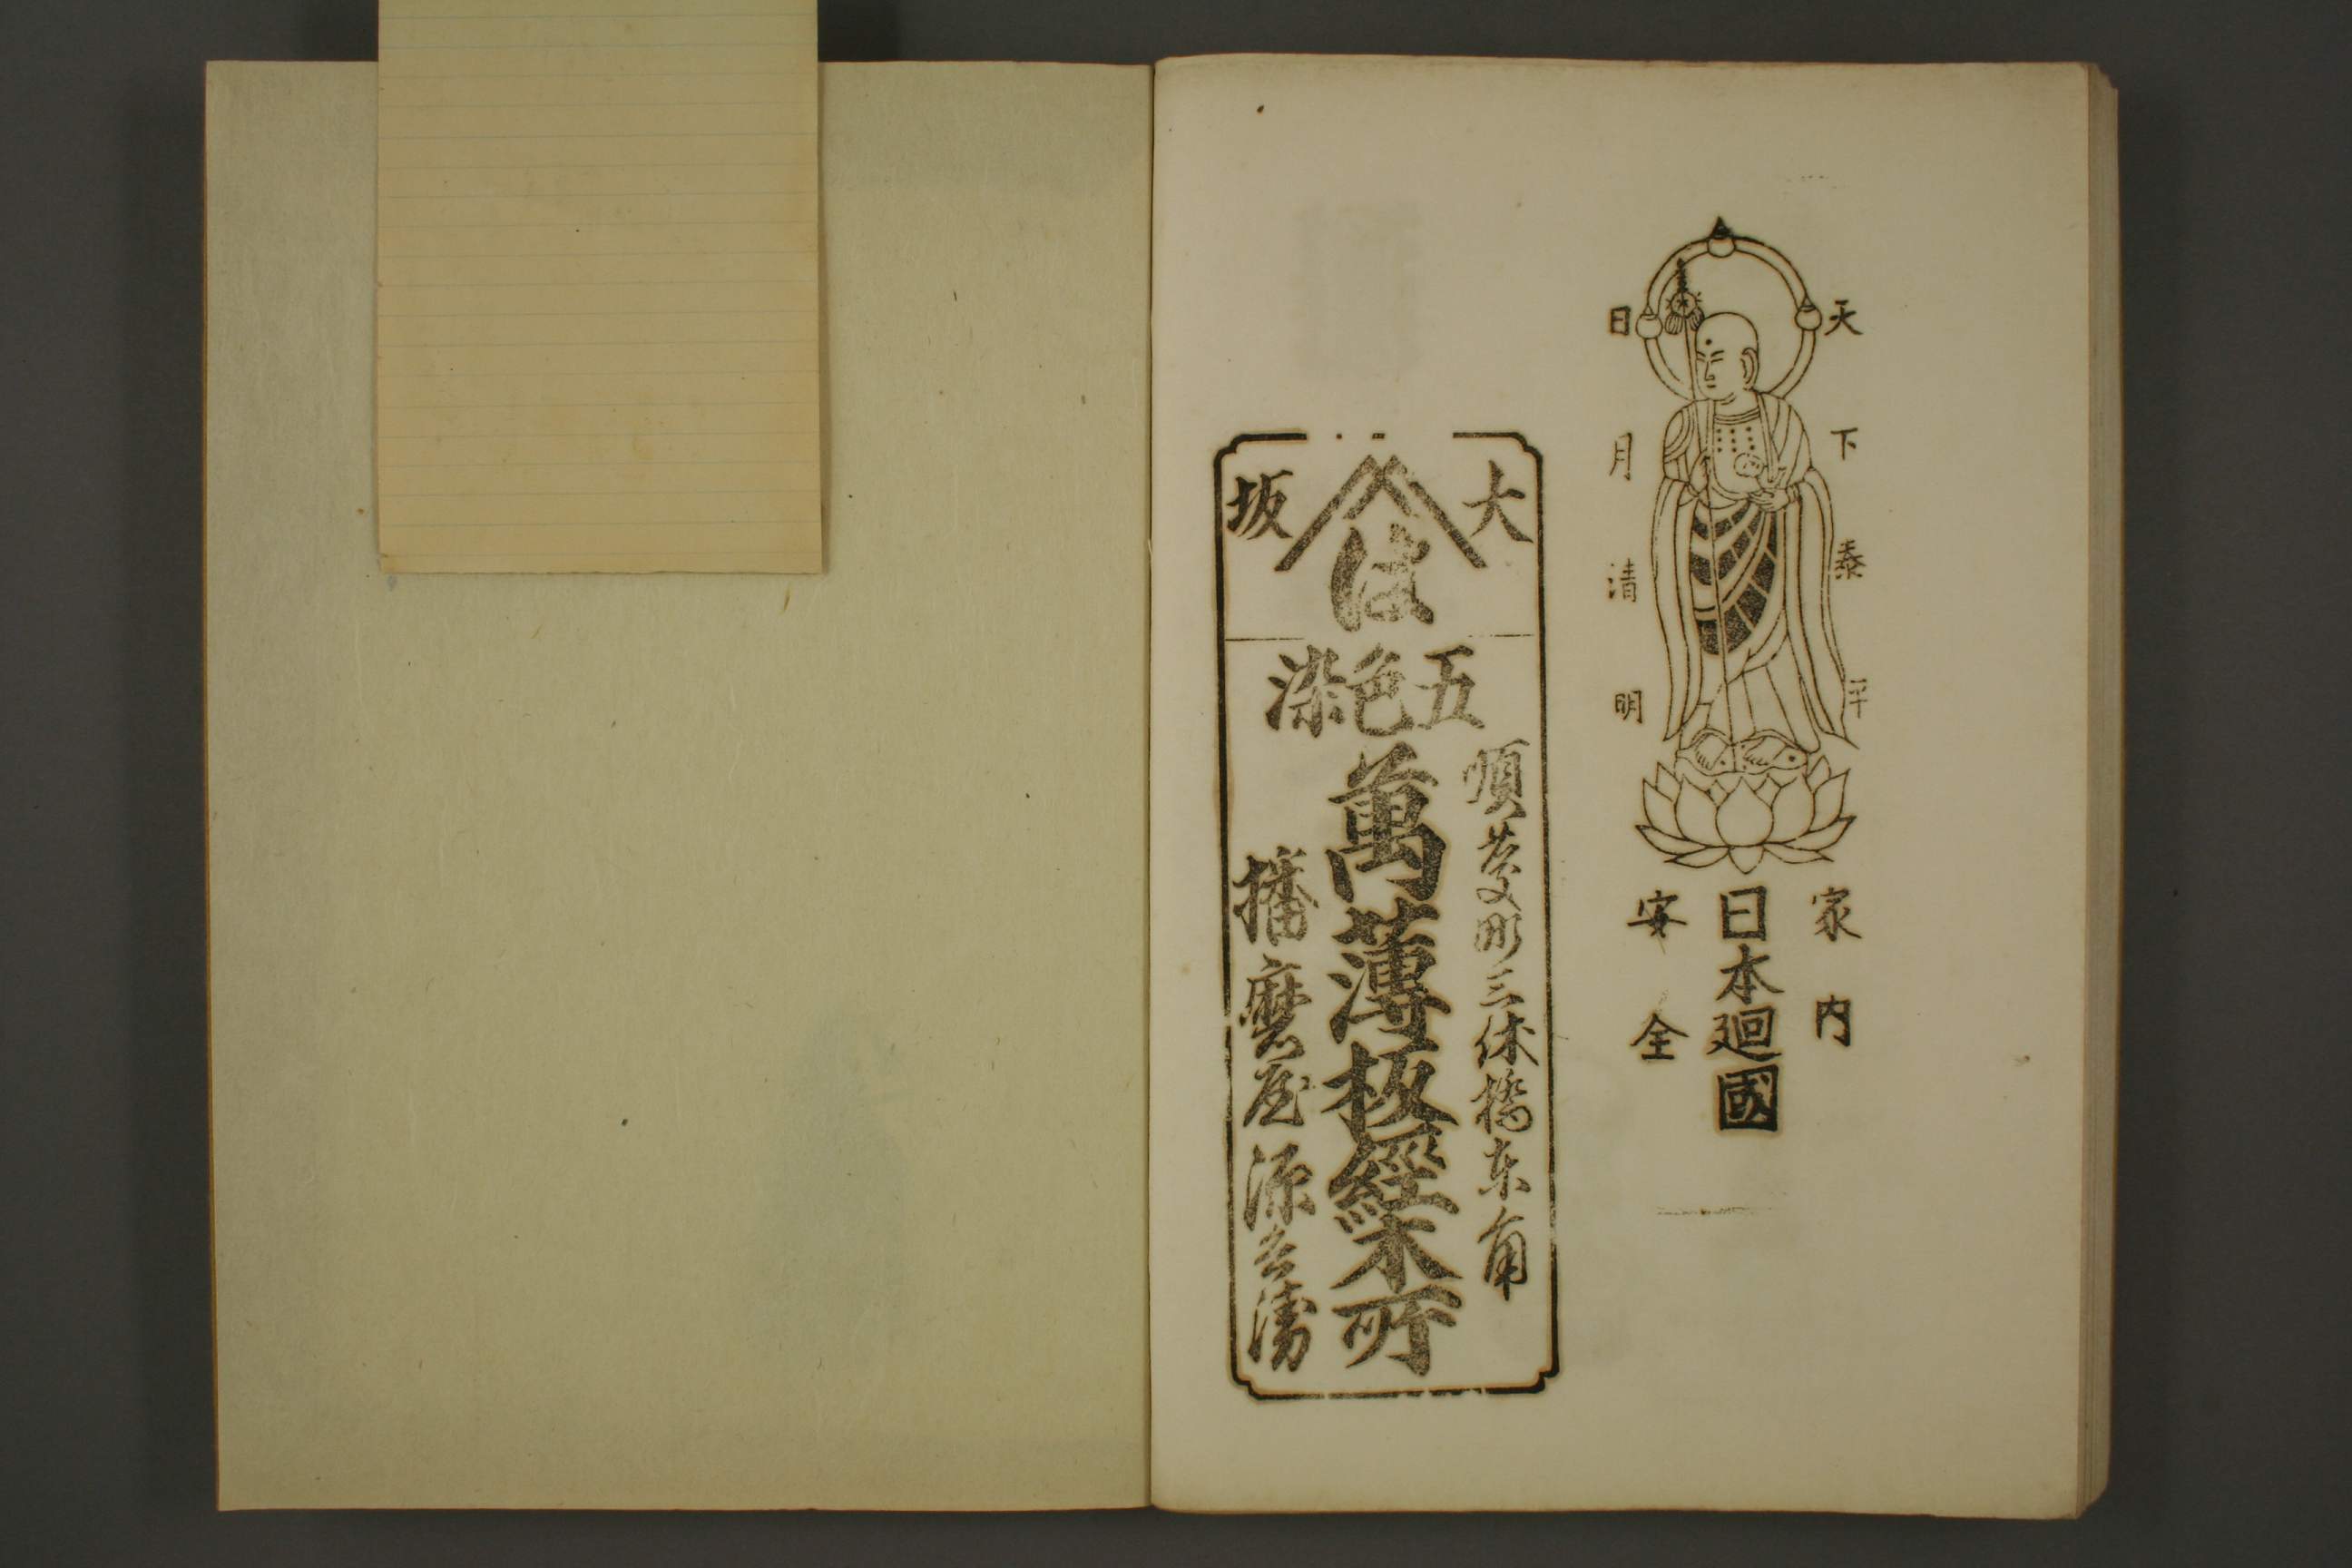 天下泰平
日月清明
家内
日本廻國
安全
大坂
は
五色染
順慶町三休橋東角
萬薄板經木所
播磨屋源兵衛